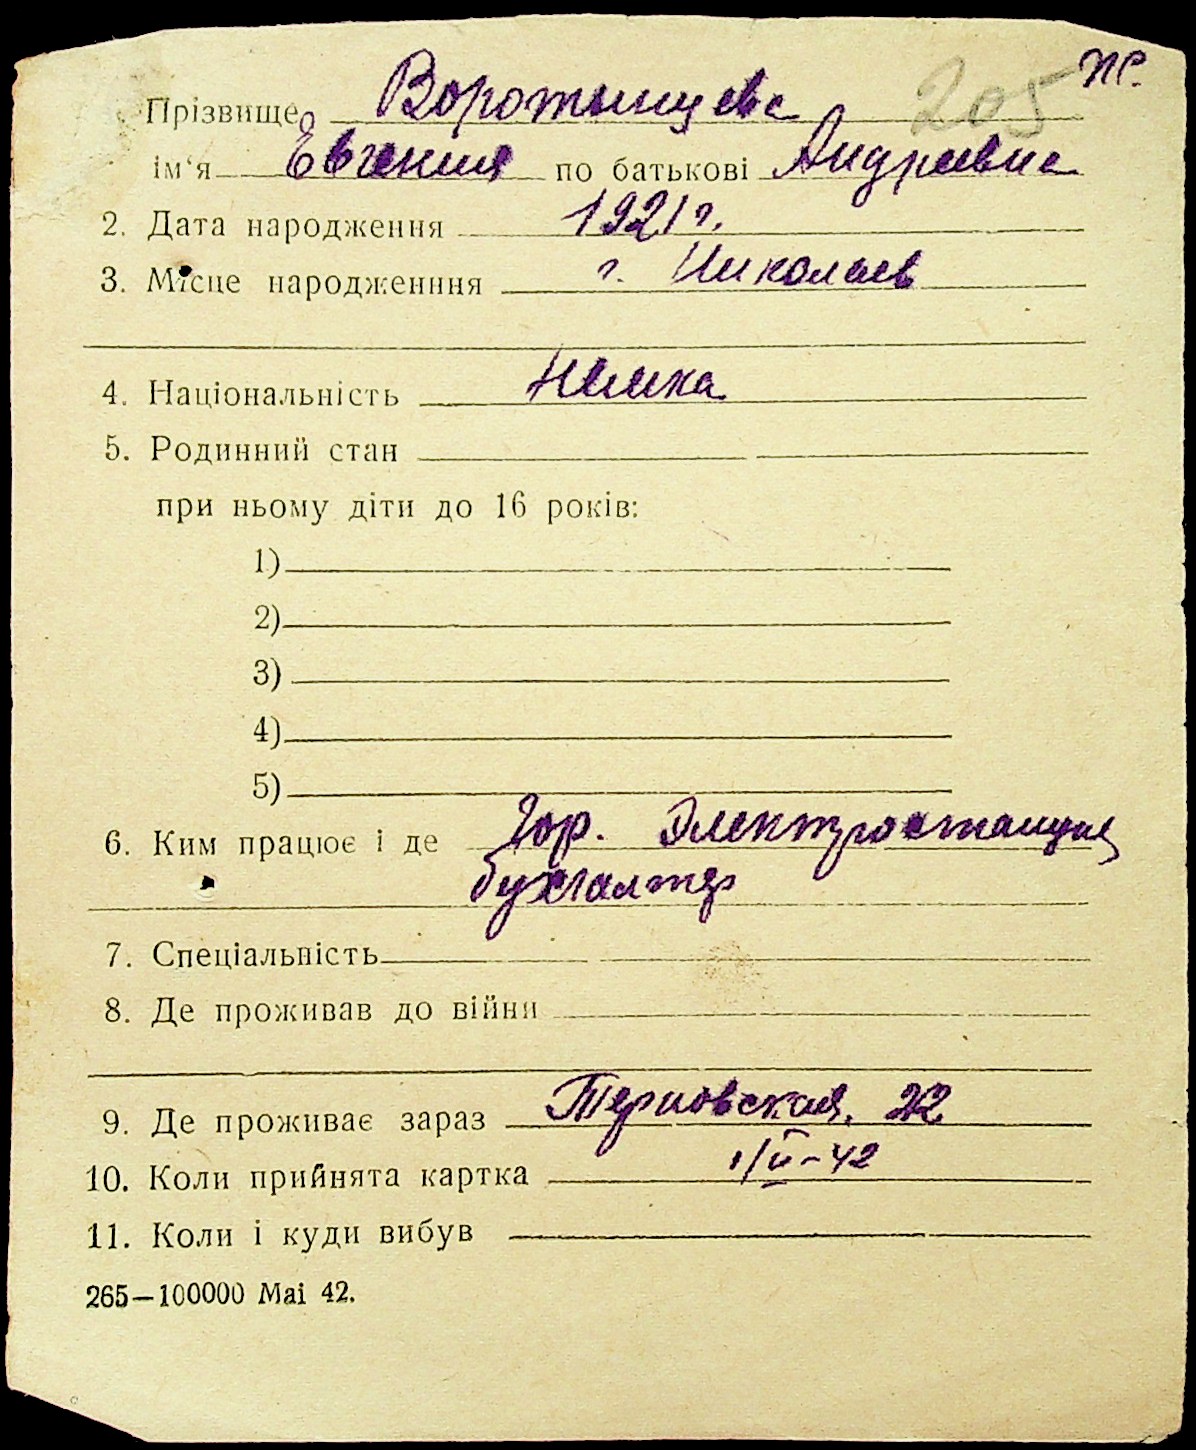 205 пр.
Прізвище Воротынцева
ім‘я Евгения по батькові Андреевна
2. Дата народження 1921 г.
3. Місце народженння г. Николаев
4. Національність Немка
5. Родинний стан
при ньому діти до 16 років:
1)
2)
3)
4)
5)
6. Ким працює і де Гор. Электростанция
бухгалтер
7. Спеціальність
8. Де проживав до війни
9. Де проживає зараз Терновская, 22
10. Коли прийнята картка 1/VI-42
11. Коли і куди вибув
265—100000 Mai 42.